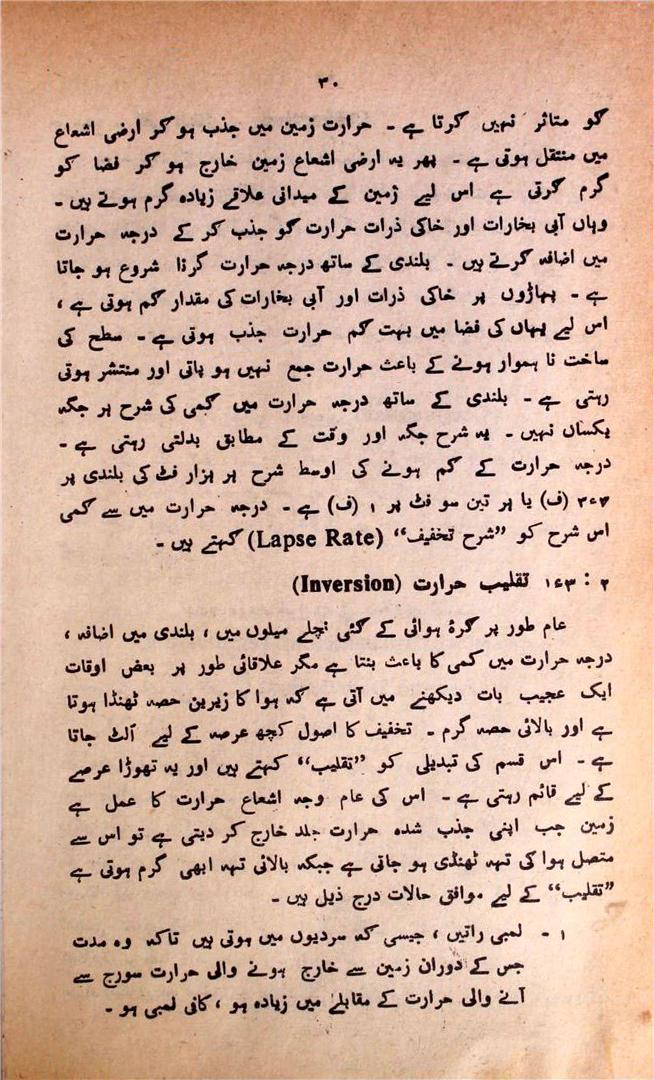 ۳۰
کو متاثر نہیں کرتا ہے ۔ حرارت زمین میں جذب ہو کر ارضی اشعاع
میں منتقل ہوتی ہے ۔ پھر یہ ارضی اشعاع زمین خارج ہو کر فضا کو
گرم کرتی ہے اس لیے زمین کے میدانی علاقے زیادہ گرم ہوتے ہیں ۔
وہاں آبی بخارات اور خاکی ذرات حرارت کو جذب کر کے درجہ حرارت
میں اضافہ کرتے ہیں ۔ بلندی کے ساتھ درجہ حرارت گرنا شروع ہو جاتا
ہے ۔ پہاڑوں پر خاکی ذرات اور آبی بخارات کی مقدار کم ہوتی ہے ،
اس لیے یہاں کی فضا میں بہت کم حرارت جذب ہوتی ہے ۔ سطح کی
ساخت نا ہموار ہونے کے باعث حرارت جمع نہیں ہو پاتی اور منتشر ہوتی
رہتی ہے ۔ بلندی کے ساتھ درجہ حرارت میں کمی کی شرح ہر جگہ
یکساں نہیں ۔ یہ شرح جگہ اور وقت کے مطابق بدلتی رہتی ہے ۔
درجہ حرارت کے کم ہونے کی اوسط شرح ہر ہزار فٹ کی بلندی پر
۳ء۳ (ف) یا ہر تین سو فٹ پر ۱ (ف) ہے ۔ درجہ حرارت میں سے کمی
اس شرح کو ”شرح تخفیف“ (Lapse Rate) کہتے ہیں ۔
۲ : ۱ء۳ تقلیب حرارت (Inversion)
عام طور پر کرۂ ہوائی کے کئی نچلے میلوں میں ، بلندی میں اضافہ ،
درجہ حرارت میں کمی کا باعث بنتا ہے مگر علاقائی طور پر بعض اوقات
ایک عجیب بات دیکھنے میں آتی ہے کہ ہوا کا زیرین حصہ ٹھنڈا ہوتا
ہے اور بالائی حصہ گرم ۔ تخفیف کا اصول کچھ عرصہ کے لیے اُلٹ جاتا
ہے ۔ اس قسم کی تبدیلی کو ”تقلیب“ کہتے ہیں اور یہ تھوڑا عرصے
کے لیے قائم رہتی ہے ۔ اس کی عام وجہ اشعاع حرارت کا عمل ہے
زمین جب اپنی جذب شدہ حرارت جلد خارج کر دیتی ہے تو اس سے
متصل ہوا کی تہہ ٹھنڈی ہو جاتی ہے جبکہ بالائی تہہ ابھی گرم ہوتی ہے
”تقلیب“ کے لیے موافق حالات درج ذیل ہیں ۔
۱ ۔ لمبی راتیں ، جیسی کہ سردیوں میں ہوتی ہیں تاکہ وہ مدت
جس کے دوران زمین سے خارج ہونے والی حرارت سورج سے
آنے والی حرارت کے مقابلے میں زیادہ ہو ، کافی لمبی ہو ۔